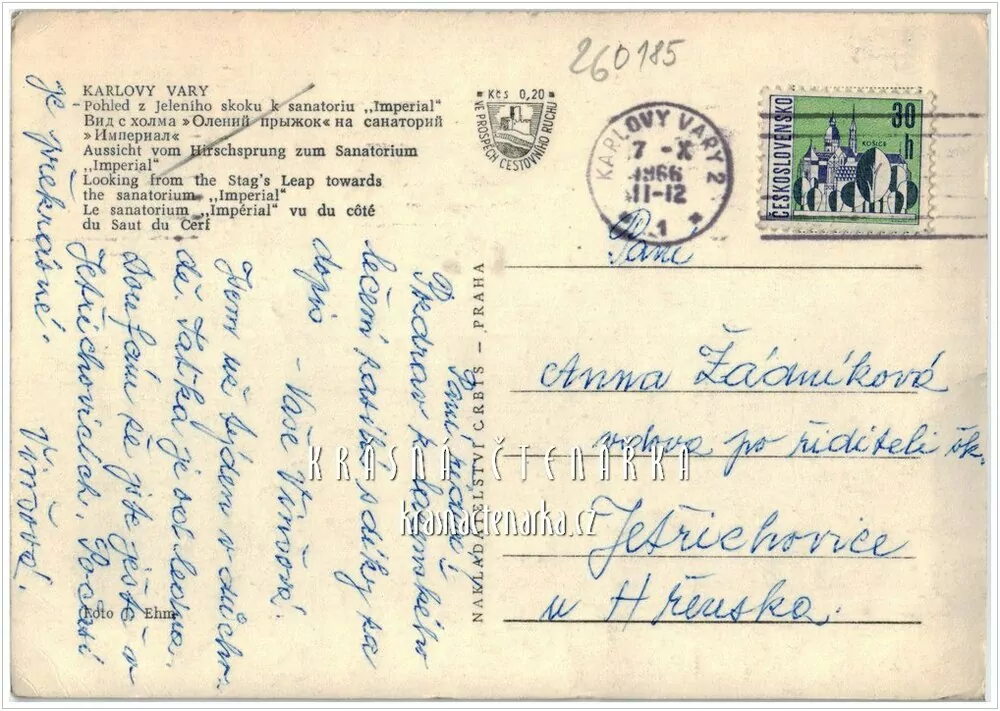 260185
KARLOVY VARY
Pohled z Jeleního skoku k sanatoriu „Imperial"
Вид с холма »Олений прыжок« на санаторий
»Империал«
Aussicht vom Hirschsprung zum Sanatorium
„Imperial"
Looking from the Stag's Leap towards
the sanatorium „Imperial"
Le sanatorium „Impérial" vu du côté
du Saut du Cerf
Kčs 0,20
VE PROSPĚCH CESTOVNÍHO RUCHU
KARLOVY VARY 2
7 -X
1966
11-12
1
ČESKOSLOVENSKO
30
h
KOŠICE
Paní
Anna Žádníková
vdova po řediteli šk.
Jetřichovice
u Hřenska.
NAKLADATELSTVÍ ORBIS – PRAHA
Paní
Pozdrav z lázeňského
léčení posílá s díky za
dopis – Vaše Vířová.
Jsem už týden v důcho-
dě. Taťka je od ledna.
Doufám že jste ještě v
Jetřichovicích. Počasí
je překrásné.
Vířová.
Foto Ehm
KRÁSNÁ ČTENÁŘKA
krasnactenarka.cz